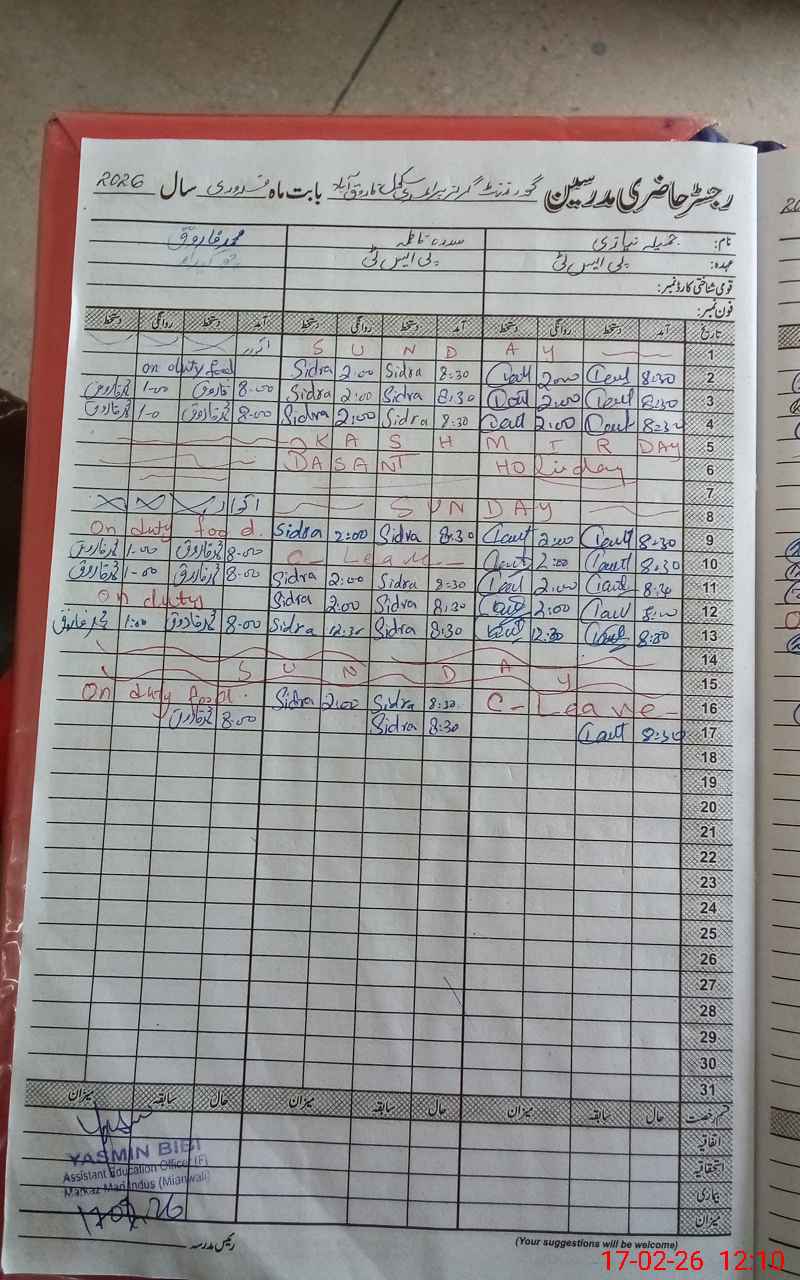 رجسٹر حاضری مدرسین گورنمنٹ گرلز پرائمری سکول فاروق آباد بابت ماہ فروری سال 2026
نام: جمیلہ نیازی سدرہ محمد فاروق
عہدہ: پی ایس ٹی پی ایس ٹی
قومی شناختی کارڈ نمبر:
فون نمبر:
تاریخ آمد دستخط روانگی دستخط آمد دستخط روانگی دستخط آمد دستخط روانگی دستخط
1 SUNDAY اتوار
2 8:30 2:00 8:30 Sidra 2:00 Sidra on duty food
3 8:30 2:00 8:30 Sidra 2:00 Sidra 8:00 فاروق 1-00 محمد فاروق
4 8:30 2:00 8:30 Sidra 2:00 Sidra 8:00 محمد فاروق 1-0 محمد فاروق
5 KASHMIR DAY
6 BASANT Holiday
7
8 SUNDAY اتوار
9 8:30 2:00 8:30 Sidra 2:00 Sidra On duty food
10 8:30 2:00 C-Leave 8:00 محمد فاروق 1-00 محمد فاروق
11 8:30 2:00 8:30 Sidra 2:00 Sidra 8:00 محمد فاروق 1-00 محمد فاروق
12 2:00 8:30 Sidra 2:00 Sidra On duty
13 8:30 12:30 8:30 Sidra 12:30 Sidra 8:00 محمد فاروق 1:00 محمد فاروق
14
15 SUNDAY
16 C-Leave 8:30 Sidra 2:00 Sidra On duty food
17 8:30 8:30 Sidra 8:00 محمد فاروق
18
19
20
21
22
23
24
25
26
27
28
29
30
31
قسم رخصت حال سابقہ میزان حال سابقہ میزان حال سابقہ میزان
اتفاقیہ
استحقاقیہ
بیماری
میزان
YASMIN BIBI
Assistant Education Officer (F)
Markaz Mari Indus (Mianwali)
رئیس مدرسہ
(Your suggestions will be welcome)
17-02-26 12:10